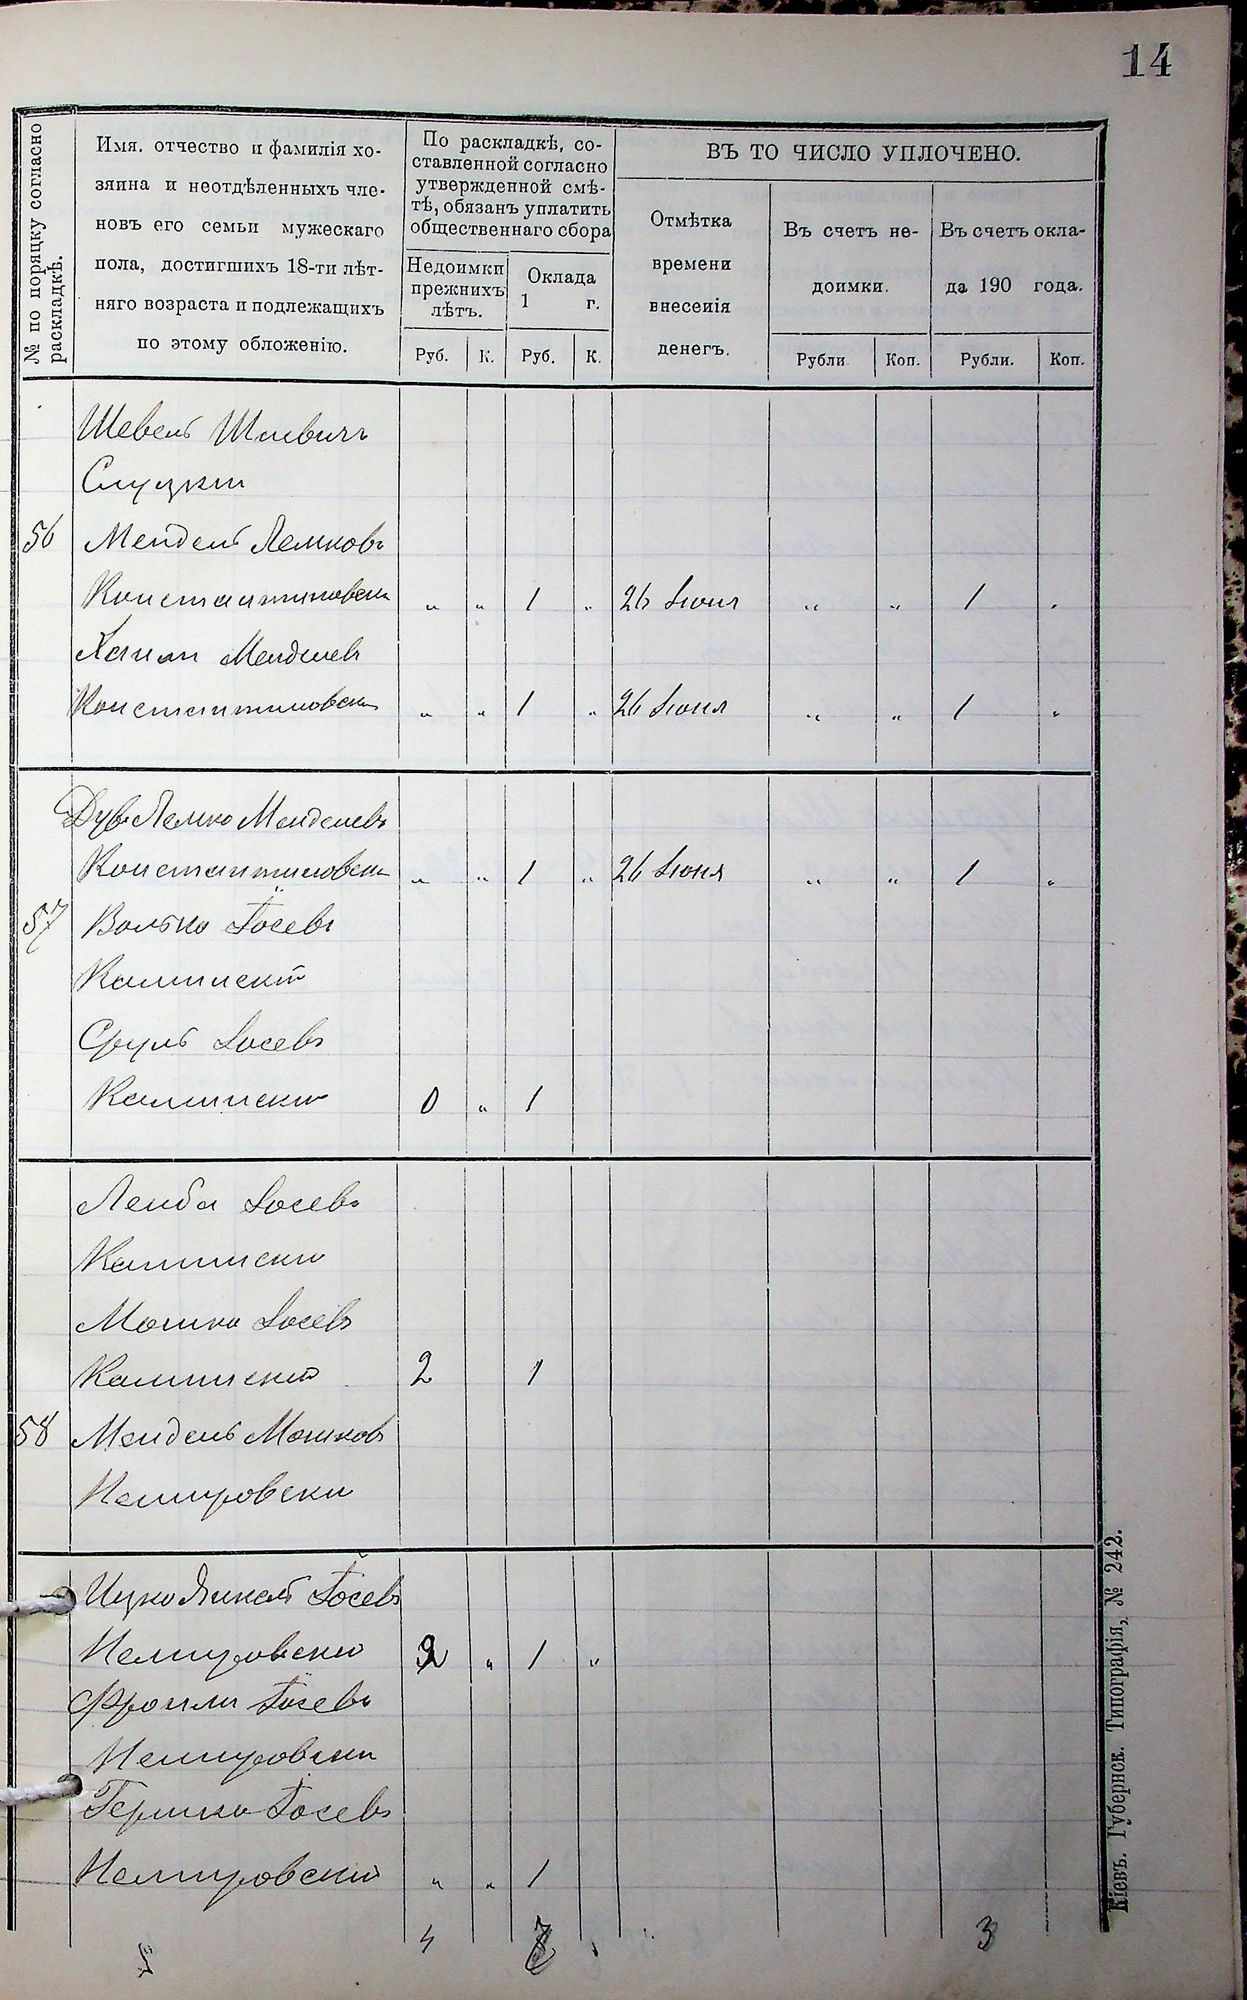 14
№ по порядку согласно
раскладкѣ.
Имя. отчество и фамилія хо-
зяина и неотдѣленныхъ чле-
новъ его семьи мужескаго
пола, достигшихъ 18-ти лѣт-
няго возраста и подлежащихъ
по этому обложенію.
По раскладкѣ, со-
ставленной согласно
утвержденной смѣ-
тѣ, обязанъ уплатить
общественнаго сбора
Недоимки
прежнихъ
лѣтъ.
Оклада
1 г.
Руб. К. Руб. К.
ВЪ ТО ЧИСЛО УПЛОЧЕНО.
Отмѣтка
времени
внесенія
денегъ.
Въ счетъ не-
доимки.
Рубли Коп.
Въ счетъ окла-
да 190 года.
Рубли. Коп.
Шевель
Слуцкій
56 Мендель Лемковъ
Константиновскій „ „ 1 „ 26 Іюня „ „ 1 „
Менделевъ
Константиновскій „ „ 1 „ 26 Іюня „ „ 1 „
Лемко Менделевъ
Константиновскій „ „ 1 „ 26 Іюня „ „ 1 „
57 Волько Іосевъ
Каминскій
Сруль Іосевъ
Каминскій 0 „ 1
Лейба Іосевъ
Каминскій
Мошко Іосевъ
Каминскій 2 1
58 Мендель Мошковъ
Немировскій
Ицко Іосевъ
Немировскій 2 „ 1 „
Фроим Іосевъ
Немировскій
Гершко Іосевъ
Немировскій „ „ 1
5 4 3
Кіевъ. Губернск. Типографія, № 242.